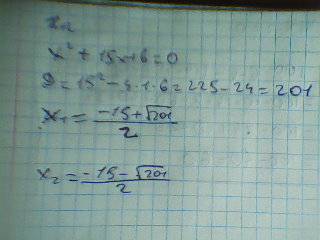 x² + 15x+6=0
D=15²-4·1·6=225-24=201
x₁=(-15+√201)/2
x₂=(-15-√201)/2